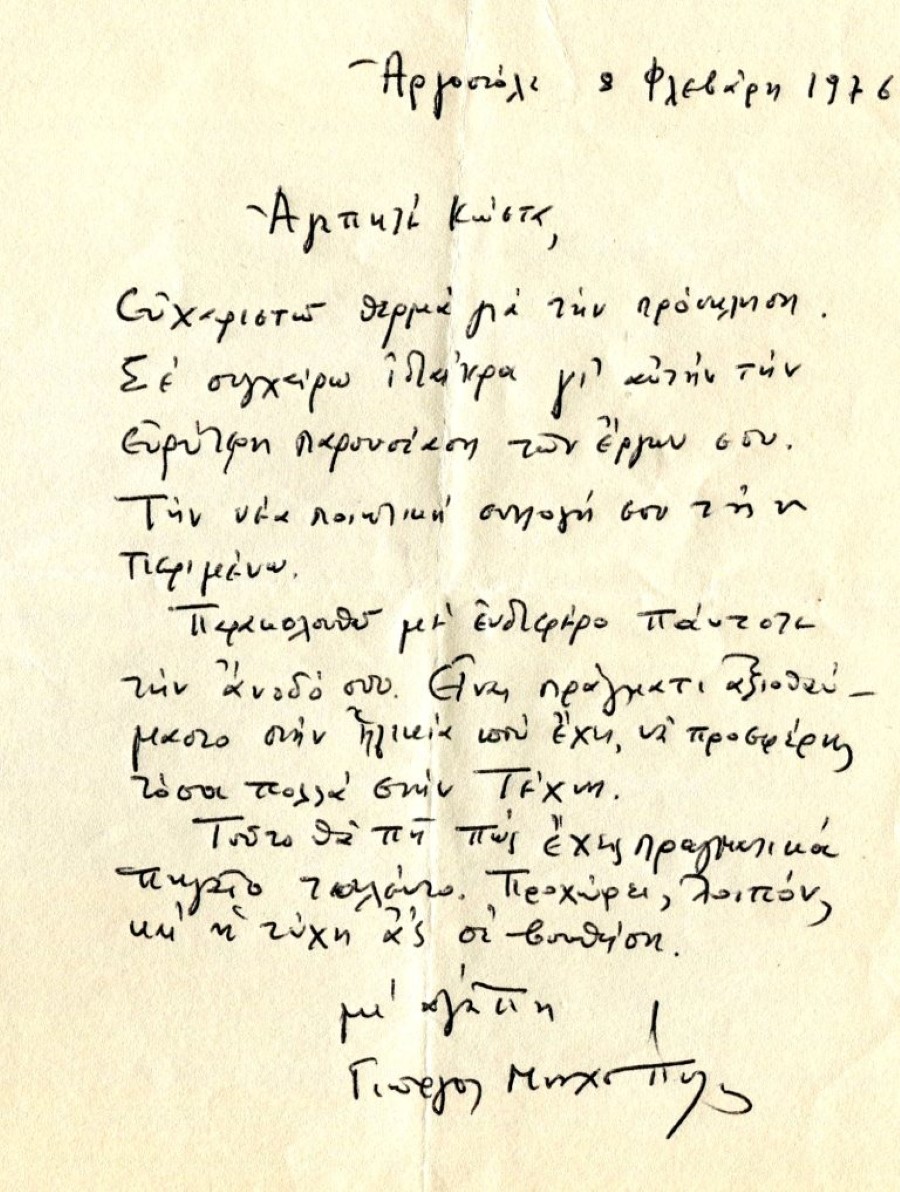 Ἀργοστόλι 8 Φλεβάρη 1976
Ἀγαπητέ Κώστα,
Εὐχαριστῶ θερμά γιά τήν πρόσκληση.
Σέ συγχαίρω ἰδιαίτερα γι' αὐτήν τήν
εὐρύτερη παρουσίαση τῶν ἔργων σου.
Τήν νέα ποιητική συλλογή σου τήν
περιμένω.
Παρακολουθῶ μέ ἐνδιαφέρο πάντοτε
τήν ἄνοδό σου. Εἶναι πράγματι ἀξιοθαύ-
μαστο στήν ἡλικία πού ἔχης, νά προσφέρης
τόσα πολλά στήν Τέχνη.
Τοῦτο θά πῆ πώς ἔχεις πραγματικά
πηγαῖο ταλέντο. Προχώρει, λοιπόν,
κι' ἡ τύχη ἄς σέ βοηθήση.
μέ ἀγάπη
Γιῶργος